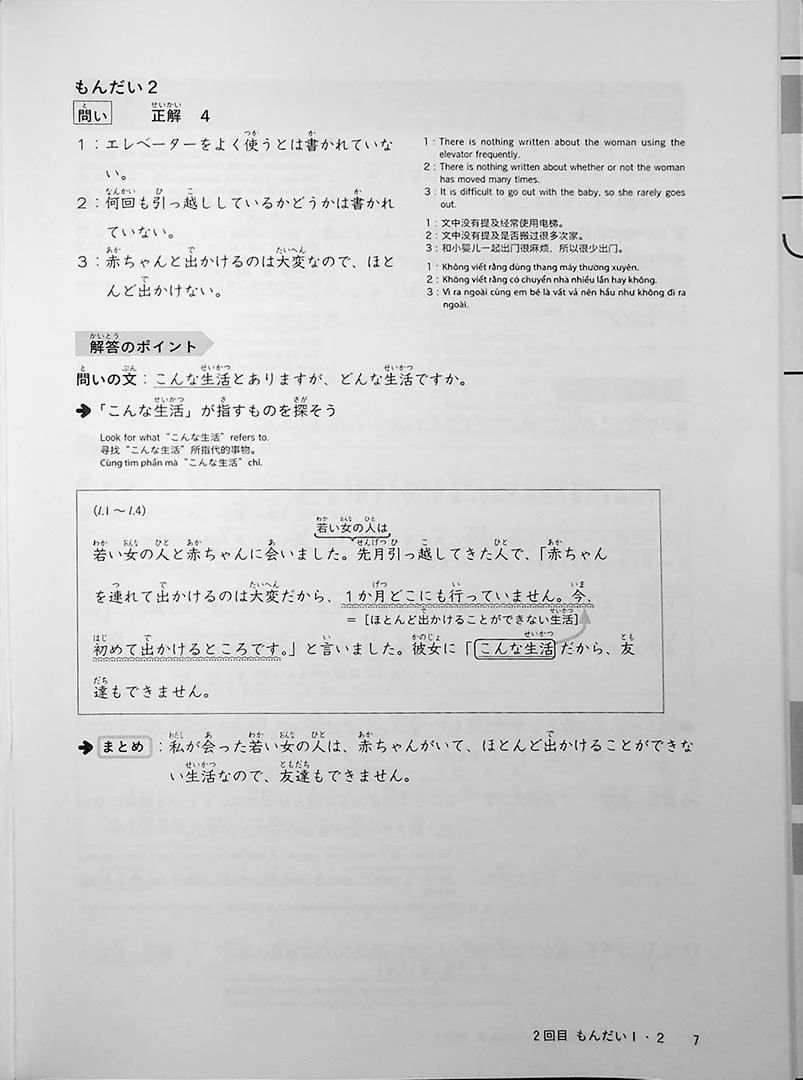 もんだい２
問い 正解 4
1：エレベーターをよく使うとは書かれていな
い。
2：何回も引っ越ししているかどうかは書かれ
ていない。
3：赤ちゃんと出かけるのは大変なので、ほと
んど出かけない。
1：There is nothing written about the woman using the
elevator frequently.
2：There is nothing written about whether or not the woman
has moved many times.
3：It is difficult to go out with the baby, so she rarely goes
out.
1：文中没有提及经常使用电梯。
2：文中没有提及是否搬过很多次家。
3：和小婴儿一起出门很麻烦，所以很少出门。
1：Không viết rằng dùng thang máy thường xuyên.
2：Không viết rằng có chuyển nhà nhiều lần hay không.
3：Vì ra ngoài cùng em bé là vất vả nên hầu như không đi ra
ngoài.
解答のポイント
問いの文：こんな生活とありますが、どんな生活ですか。
➔「こんな生活」が指すものを探そう
Look for what "こんな生活" refers to.
寻找“こんな生活”所指代的事物。
Cùng tìm phần mà "こんな生活" chỉ.
(l.1～l.4)
若い女の人は
若い女の人と赤ちゃんに会いました。先月引っ越してきた人で、「赤ちゃん
を連れて出かけるのは大変だから、1か月どこにも行っていません。今、
＝［ほとんど出かけることができない生活］
初めて出かけるところです。」と言いました。彼女に「こんな生活だから、友
達もできません。
➔ まとめ：私が会った若い女の人は、赤ちゃんがいて、ほとんど出かけることができな
い生活なので、友達もできません。
2回目 もんだい1・2 7